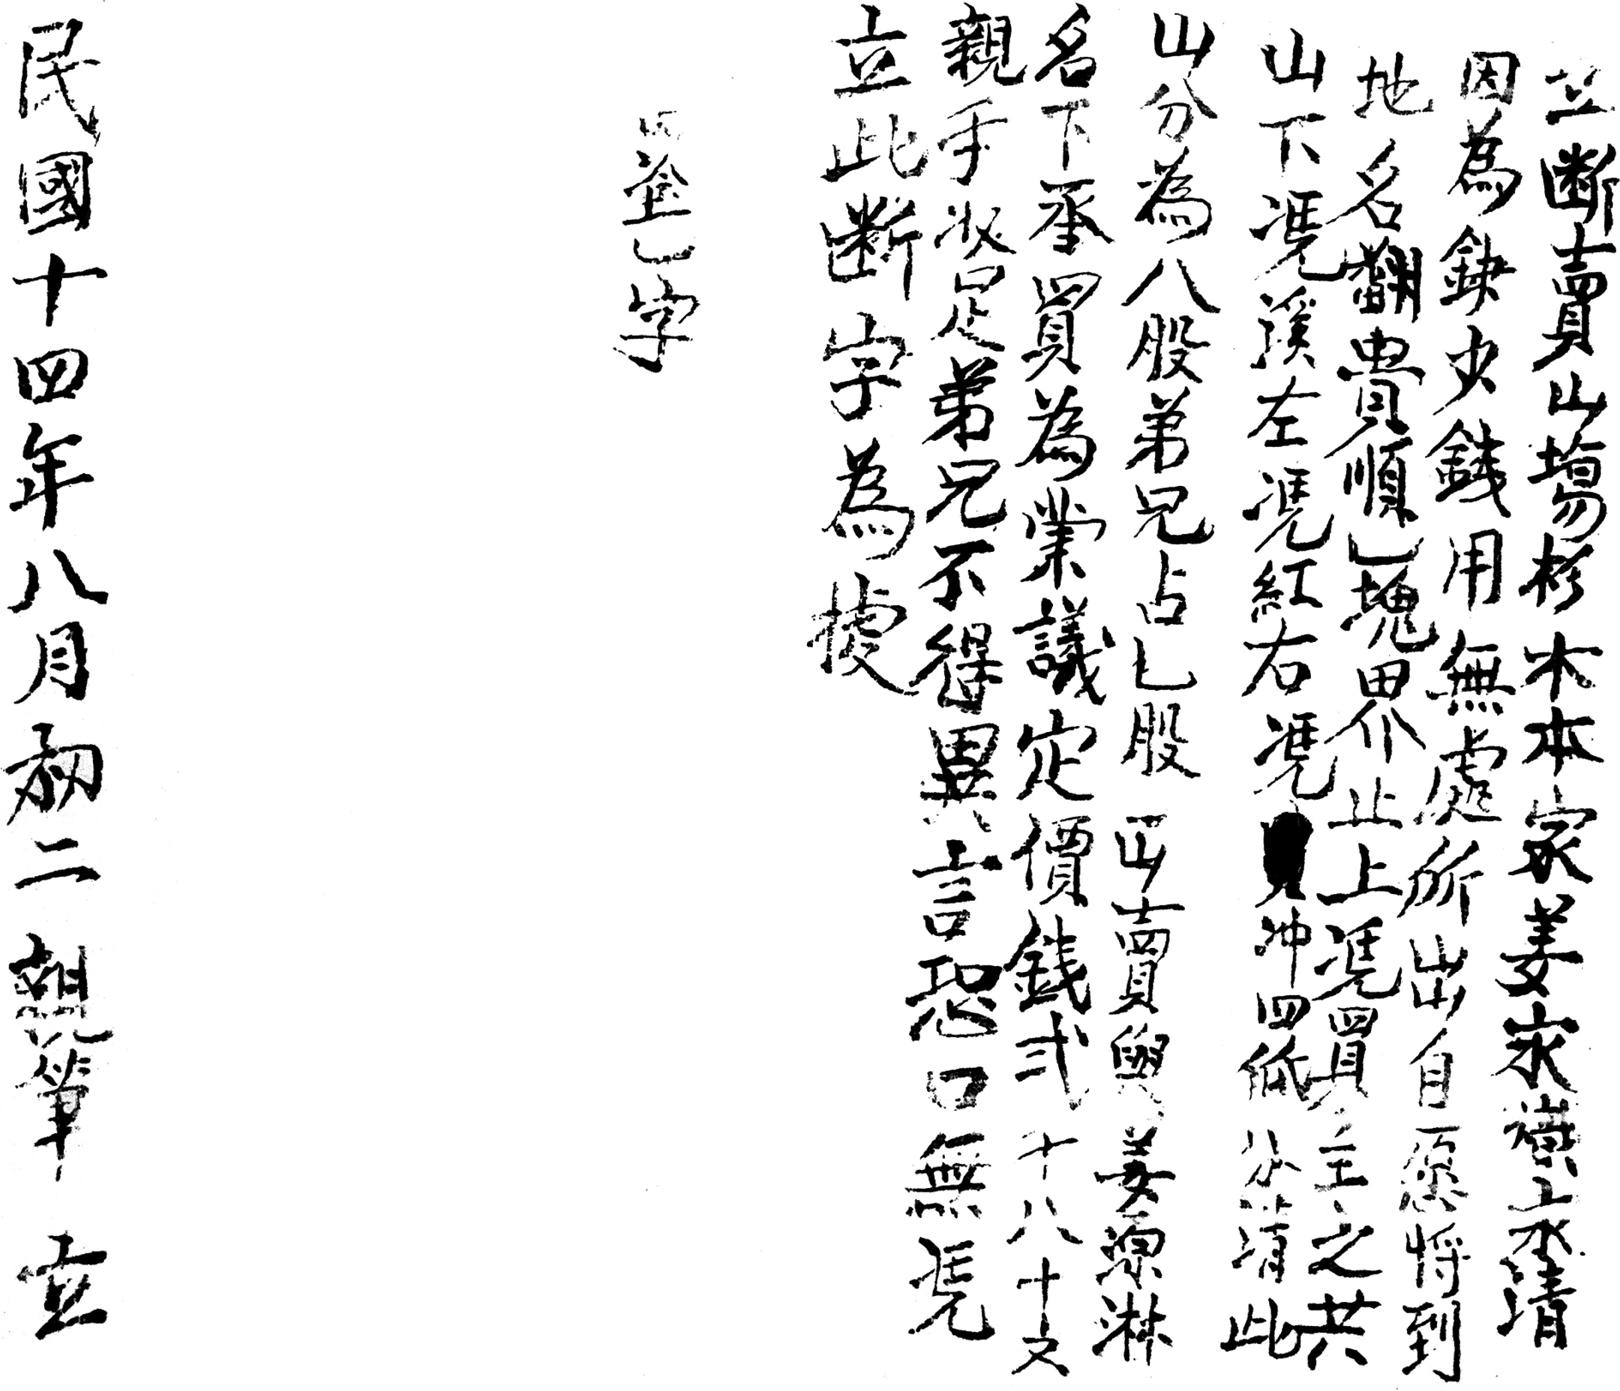 立斷賣山塲杉木本家姜家棋上永清
因為缺少錢用無處所出自愿將到
地名翻貴順乚塊界止上凴買主之共
山下凴溪左凴紅右凴冲四低分清此
山分為八股弟兄占乚股出賣與姜源淋
名下承買為業議定價錢弍十八十文
親手收足弟兄不得異言恐口無凴
立此斷字為據
乚字
民國十四年八月初二親筆立